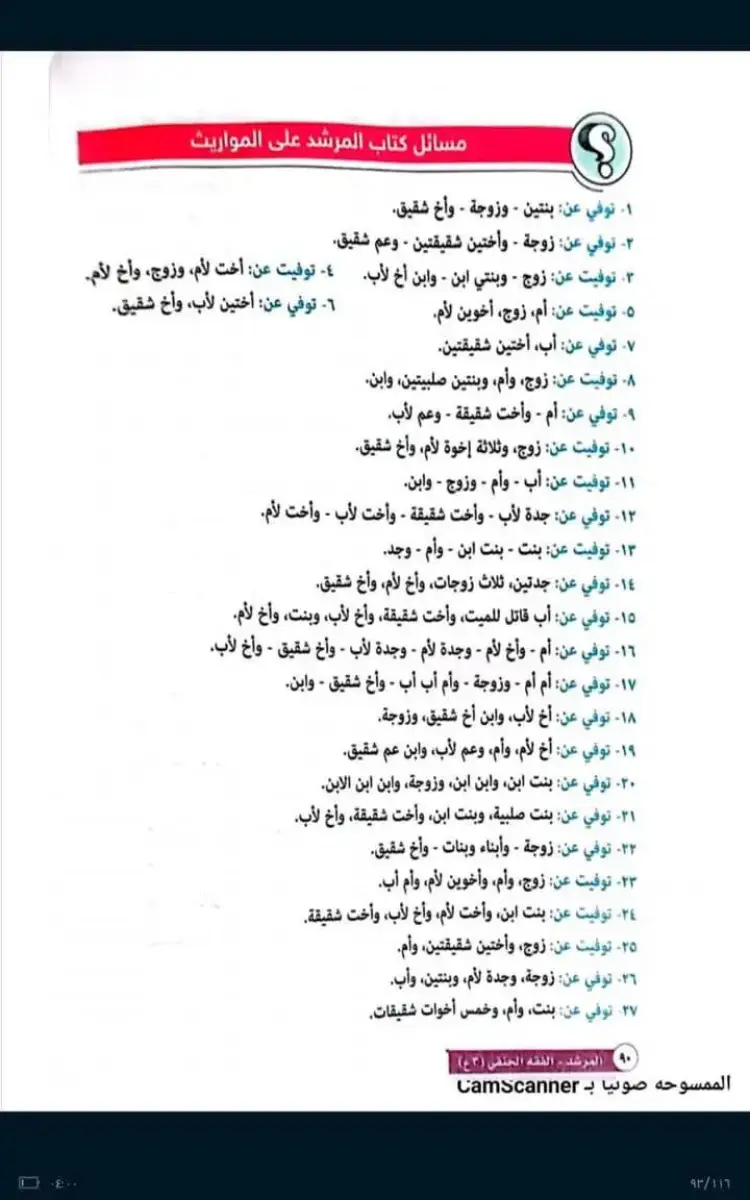 مسائل كتاب المرشد على المواريث
١- توفي عن: بنتين - وزوجة - وأخ شقيق.
٢- توفي عن: زوجة - وأختين شقيقتين - وعم شقيق.
٣- توفيت عن: زوج - وبنتي ابن - وابن أخ لأب.
٤- توفيت عن: أخت لأم، وزوج، وأخ لأم.
٥- توفيت عن: أم، زوج، أخوين لأم.
٦- توفي عن: أختين لأب، وأخ شقيق.
٧- توفي عن: أب، أختين شقيقتين.
٨- توفيت عن: زوج، وأم، وبنتين صلبيتين، وابن.
٩- توفي عن: أم - وأخت شقيقة - وعم لأب.
١٠- توفيت عن: زوج، وثلاثة إخوة لأم، وأخ شقيق.
١١- توفيت عن: أب - وأم - وزوج - وابن.
١٢- توفي عن: جدة لأب - وأخت شقيقة - وأخت لأب - وأخت لأم.
١٣- توفيت عن: بنت - بنت ابن - وأم - وجد.
١٤- توفي عن: جدتين، ثلاث زوجات، وأخ لأم، وأخ شقيق.
١٥- توفي عن: أب قاتل للميت، وأخت شقيقة، وأخ لأب، وبنت، وأخ لأم.
١٦- توفي عن: أم - وأخ لأم - وجدة لأم - وجدة لأب - وأخ شقيق - وأخ لأب.
١٧- توفي عن: أم أم - وزوجة - وأم أب أب - وأخ شقيق - وابن.
١٨- توفي عن: أخ لأب، وابن أخ شقيق، وزوجة.
١٩- توفي عن: أخ لأم، وأم، وعم لأب، وابن عم شقيق.
٢٠- توفي عن: بنت ابن، وابن ابن، وزوجة، وابن ابن الابن.
٢١- توفي عن: بنت صلبية، وبنت ابن، وأخت شقيقة، وأخ لأب.
٢٢- توفي عن: زوجة - وأبناء وبنات - وأخ شقيق.
٢٣- توفيت عن: زوج، وأم، وأخوين لأم، وأم أب.
٢٤- توفيت عن: بنت ابن، وأخت لأم، وأخ لأب، وأخت شقيقة.
٢٥- توفيت عن: زوج، وأختين شقيقتين، وأم.
٢٦- توفي عن: زوجة، وجدة لأم، وبنتين، وأب.
٢٧- توفي عن: بنت، وأم، وخمس أخوات شقيقات.
٩٠ المرشد - الفقه الحنفي (٣ع)
الممسوحه ضوئيا بـ CamScanner
٠٤:٠٠ ٩٣/١١٦